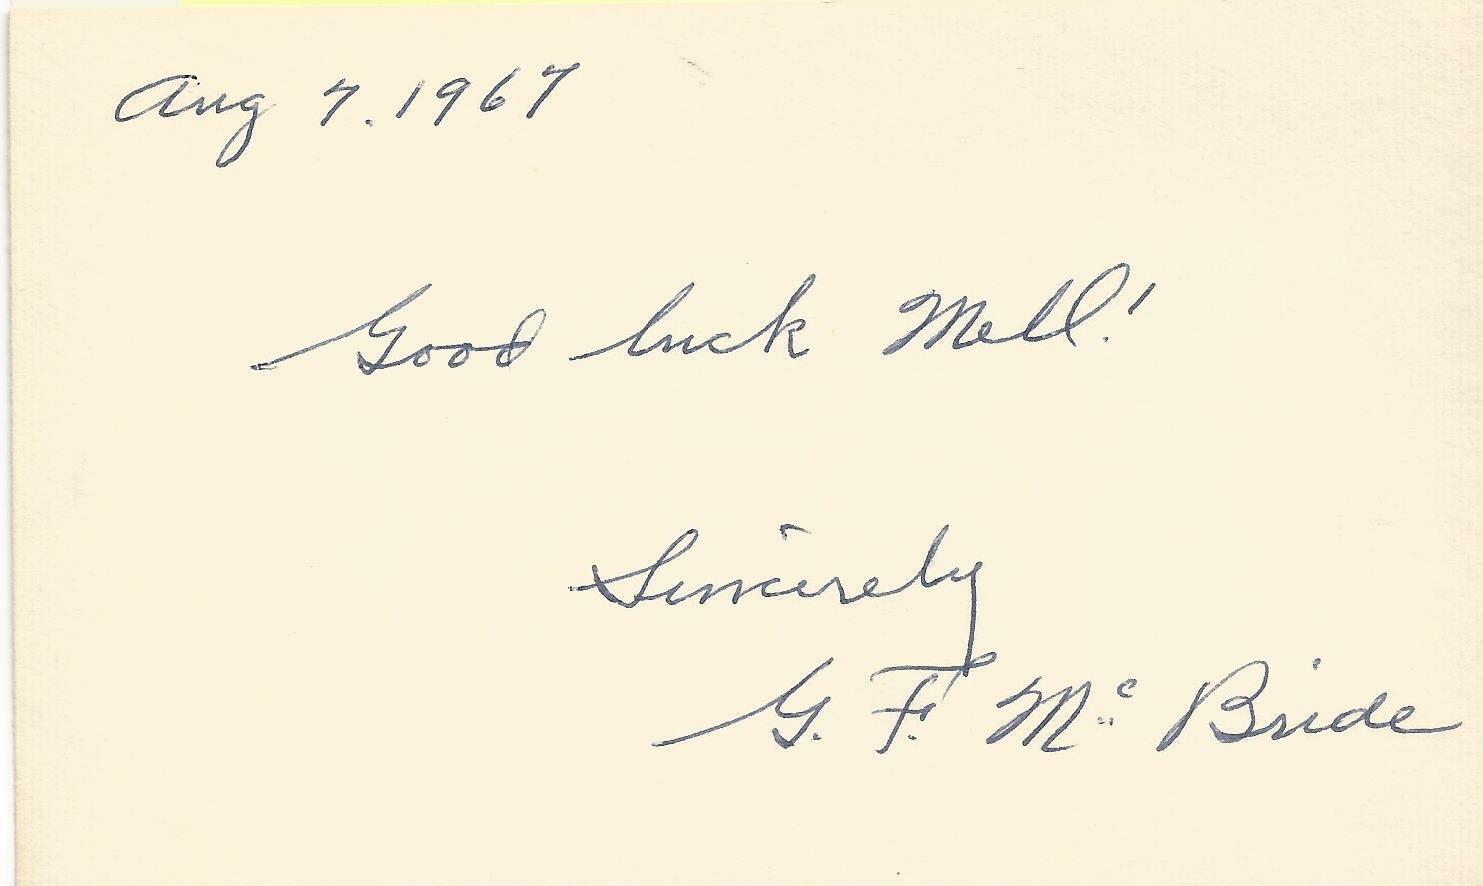 Aug 7. 1967
Good luck Mell!
Sincerely
G. F. Mc Bride